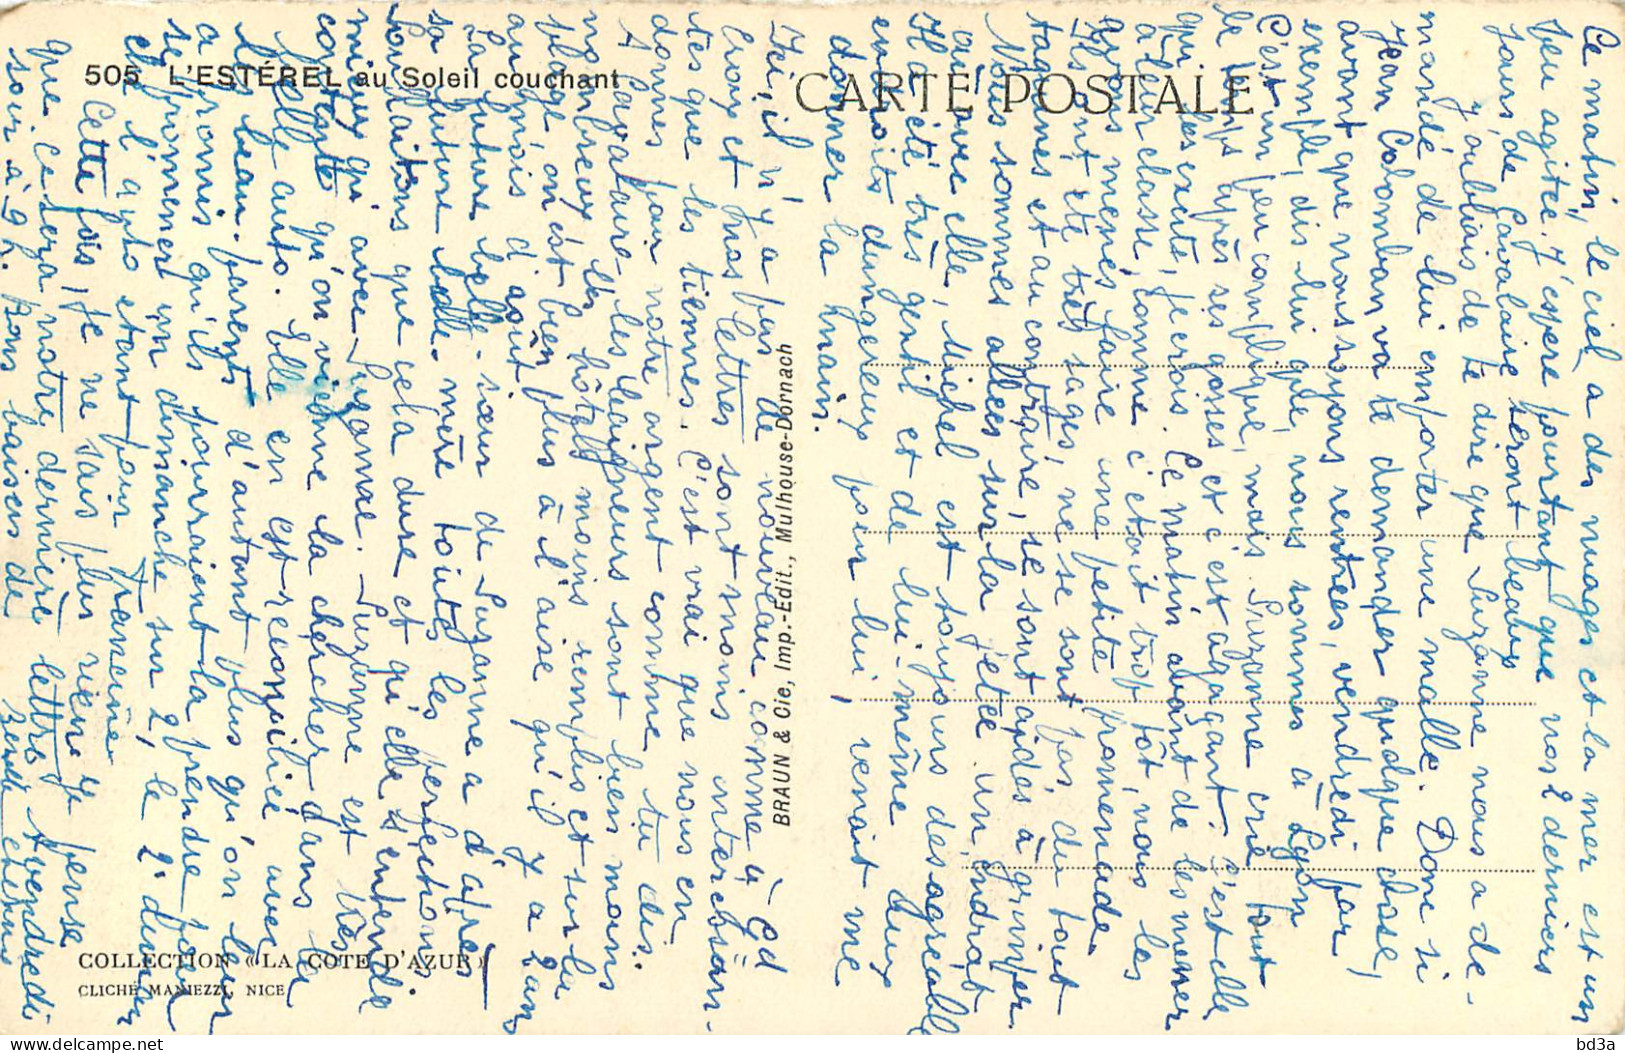 505 L'ESTÉREL au Soleil couchant
CARTE POSTALE
BRAUN & Cie, Imp.-Edit., Mulhouse-Dornach
COLLECTION « LA COTE D'AZUR »
CLICHÉ MANIEZZI, NICE
Ce matin, le ciel a des nuages et la mer est un
peu agitée. J'espère pourtant que nos 2 derniers
jours de Cavalaire seront beaux
J'oubliais de te dire que Suzanne nous a de-
mandé de lui emporter une malle. Donc si
Jean Colomban va te demander quelque chose,
avant que nous soyons rentrées, vendredi par
exemple, dis lui que nous sommes à Lyon
C'est un peu compliqué, mais Suzanne crie tout
le temps après ses gosses et c'est agaçant. C'est elle
qui les excite, je crois. Ce matin avant de les mener
à leur classe, comme c'était trop tôt, nous les
avons menés faire une petite promenade.
Ils ont été très sages, ne se sont pas du tout
taquinés et au contraire, se sont aidés à grimper
Nous sommes allées sur la jetée un endroit
avec elle, Michel est toujours désagréable
Il a été très gentil et de lui-même aux
endroits dangereux pour lui, venait me
donner la main.
Ici, il n'y a pas de nouveau comme à
Croix et mes lettres sont moins intéressan-
tes que les tiennes. C'est vrai que nous en
donnes pour notre argent comme tu dis.
A Cavalaire les baigneurs sont bien moins
nombreux, les hôtels moins remplis et sur la
plage on est bien plus à l'aise qu'il y a 2 ans
au mois d'août.
La future belle-sœur de Suzanne a d'après
sa future belle-mère toutes les perfections
Souhaitons que cela dure et qu'elle s'entende
mieux qu'avec Suzanne. Suzanne est très
contente qu'on vienne la chercher dans la
belle auto. Elle en est réconciliée avec
les beaux-parents d'autant plus qu'on leur
a promis qu'ils pourraient la prendre pour
se promener un dimanche sur 2, le 2e dimanche
et l'auto étant pour Francine
Cette fois, je ne sais plus rien et pense
que ce sera notre dernière lettre. A vendredi
soir à 9h. Bons baisers de